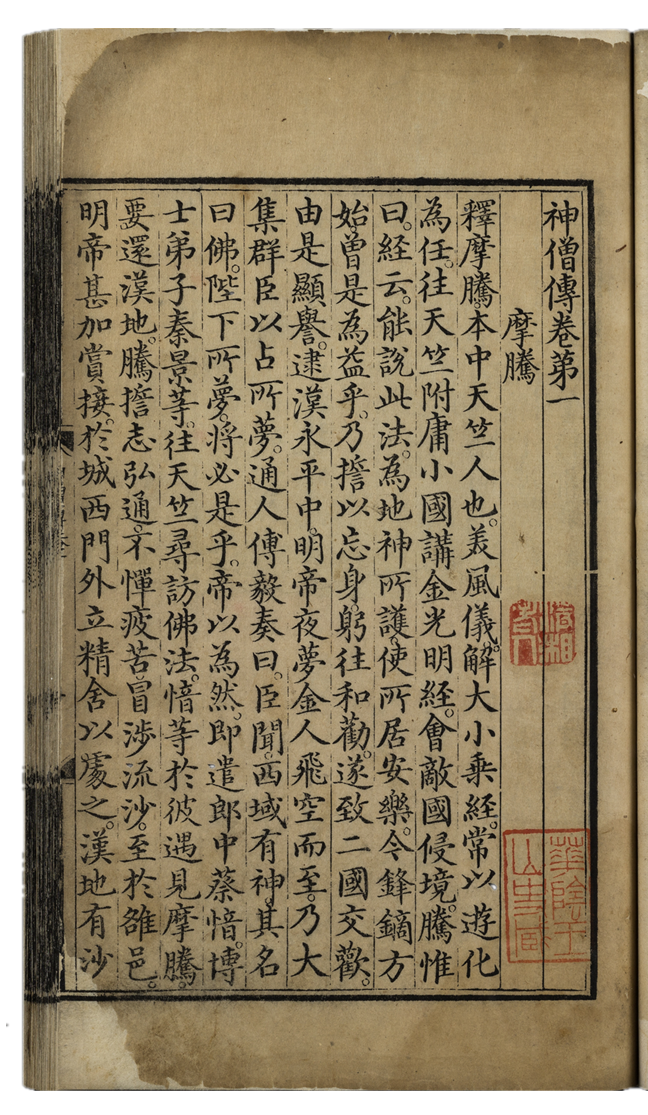 神僧傳卷第一
摩騰
釋摩騰。本中天竺人也。美風儀。解大小乘經。常以遊化
為任。往天竺附庸小國講金光明經。會敵國侵境。騰惟
曰。經云。能說此法。為地神所護。使所居安樂。今鋒鏑方
始。曾是為益乎。乃擔以忘身。躬往和勸。遂致二國交歡。
由是顯譽。逮漢永平中。明帝夜夢金人飛空而至。乃大
集群臣以占所夢。通人傅毅奏曰。臣聞。西域有神。其名
曰佛。陛下所夢。將必是乎。帝以為然。即遣郎中蔡愔。博
士弟子秦景等。往天竺尋訪佛法。愔等於彼遇見摩騰。
要還漢地。騰擔志弘通。不憚疲苦。冒涉流沙。至於雒邑。
明帝甚加賞接。於城西門外立精舍以處之。漢地有沙
華陰王
山史藏